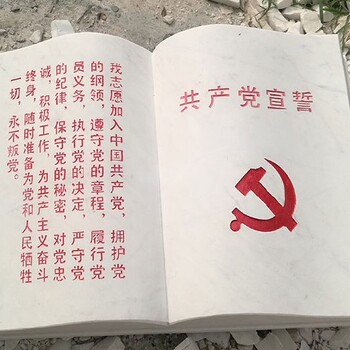 共产党宣誓
我志愿加入中国共产党，拥护党
的纲领，遵守党的章程，履行党
员义务，执行党的决定，严守党
的纪律，保守党的秘密，对党忠
诚，积极工作，为共产主义奋斗
终身，随时准备为党和人民牺牲
一切，永不叛党。